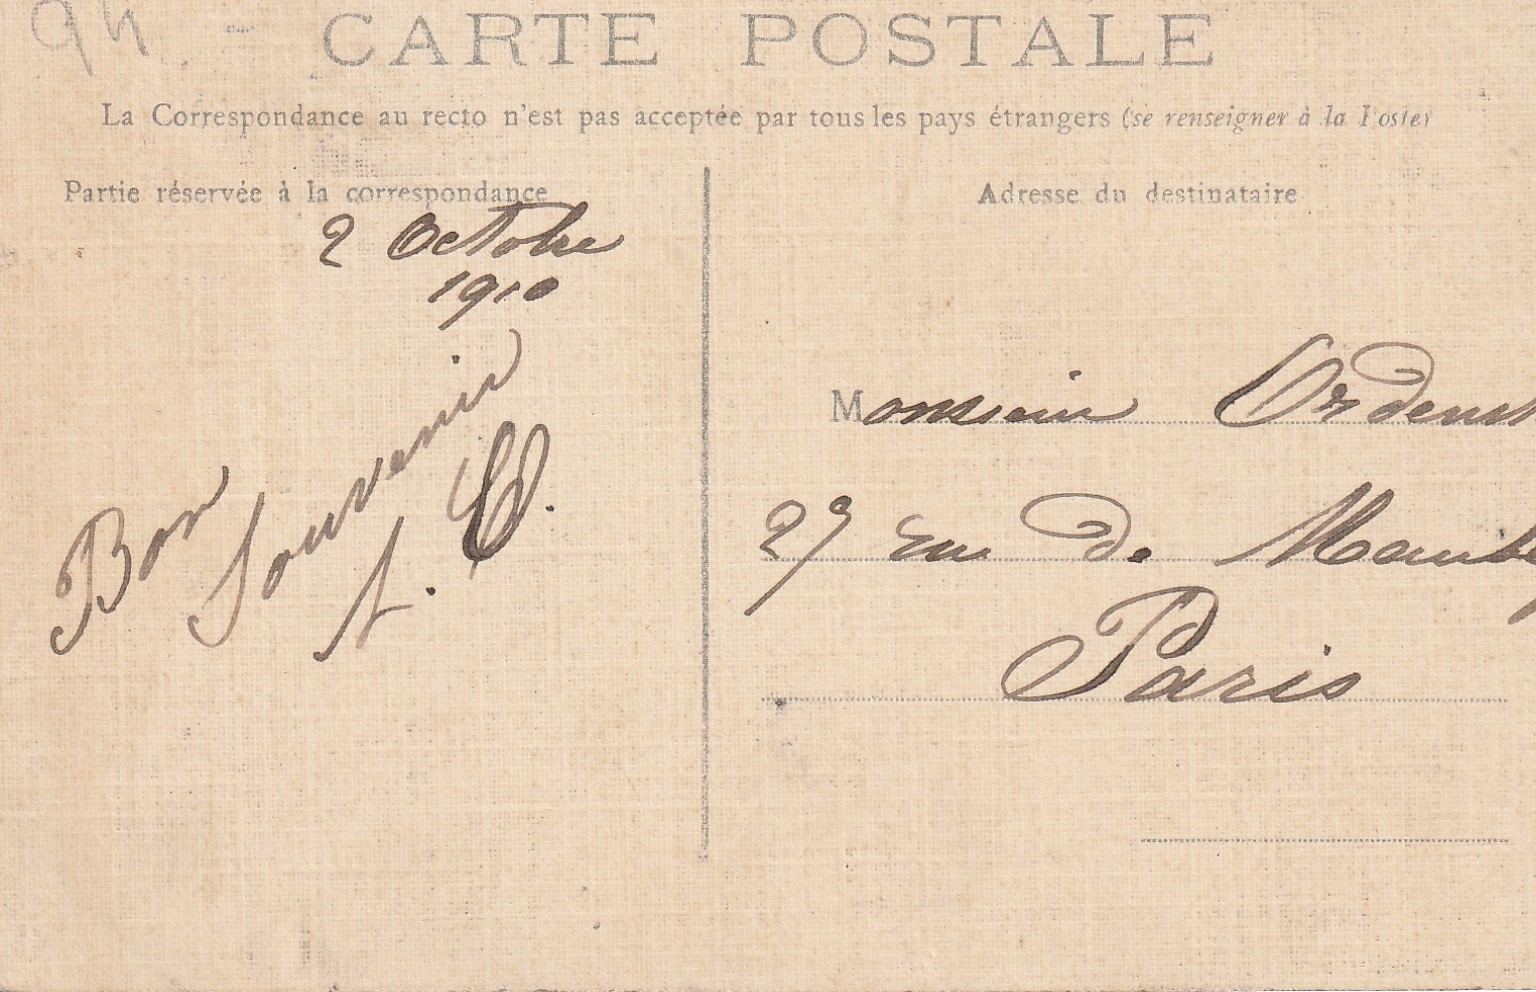 94 -
CARTE POSTALE
La Correspondance au recto n'est pas acceptée par tous les pays étrangers (se renseigner à la Poste)
Partie réservée à la correspondance
2 Octobre
1910
Bon
Souvenir
Adresse du destinataire
Monsieur
rue de
Paris